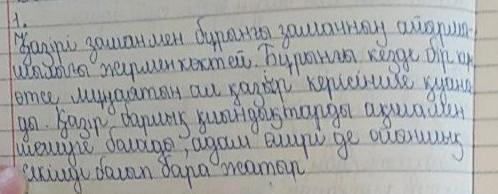 1.
Қазіргі заман мен бұрынғы заманның айырма-
шылығы жер мен көктей. Бұрынғы кезде бір
өтсе, мұңаятын ал қазір керісінше қуана-
ды. Қазір барлық қиындықтарды ақшамен
шешуге болады, адам өмірі де ойыншық
секілді болып бара жатыр